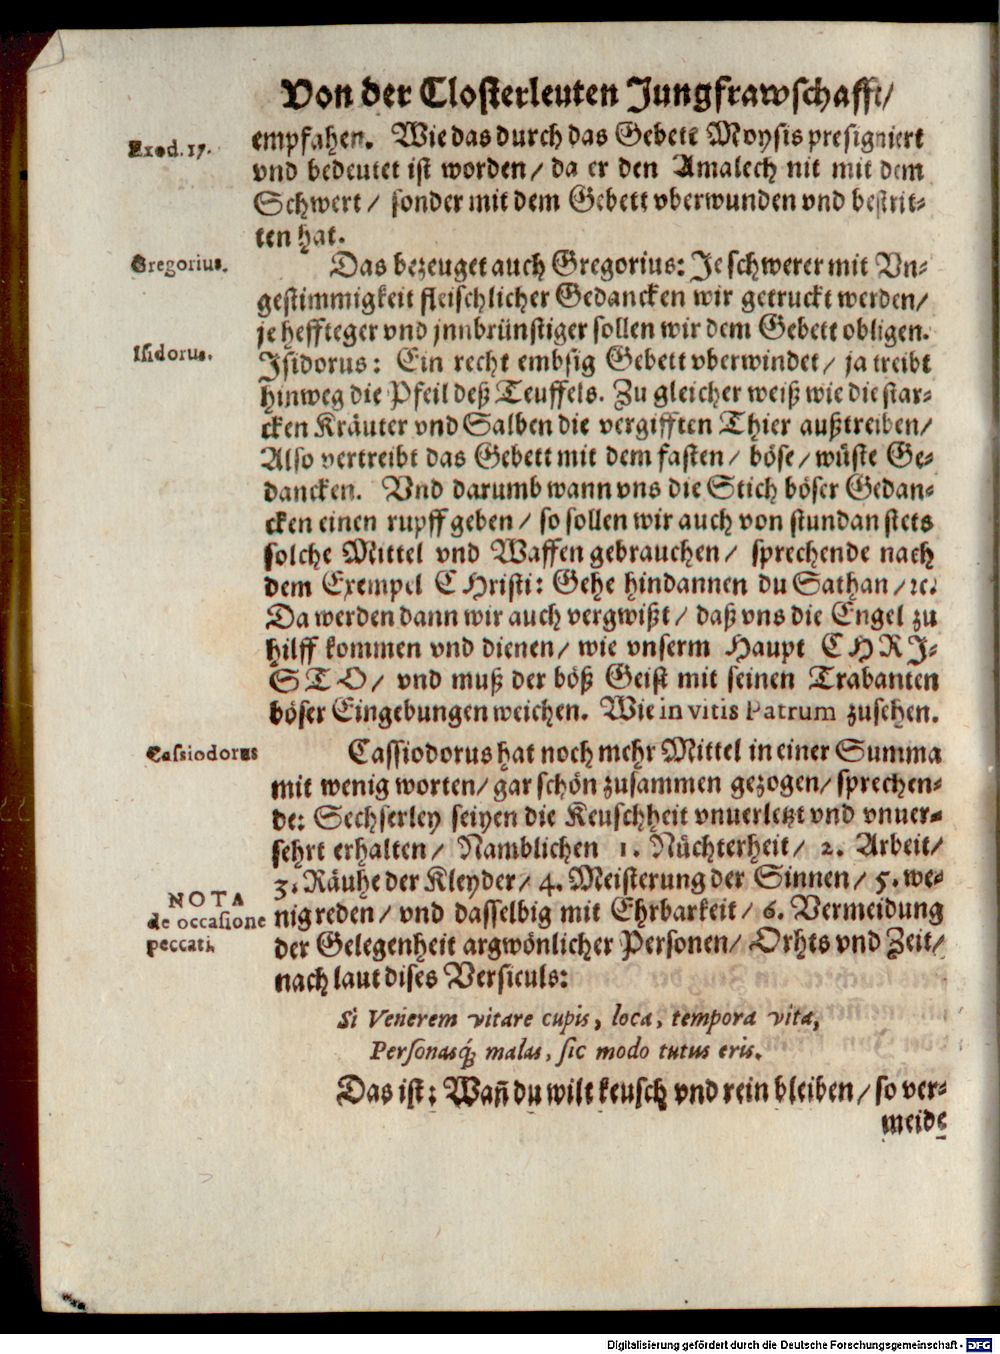 Von der Closterleuten Jungfrawschafft/
Exod. 17.
empfahen. Wie das durch das Gebett Moysis presigniert
vnd bedeutet ist worden/ da er den Amalech nit mit dem
Schwert/ sonder mit dem Gebett vberwunden vnd bestrit-
ten hat.
Gregorius.
Das bezeuget auch Gregorius: Je schwerer mit Vn-
gestimmigkeit fleischlicher Gedancken wir getruckt werden/
je heffteger vnd jnnbrünstiger sollen wir dem Gebett obligen.
Isidorus.
Isidorus: Ein recht embsig Gebett vberwindet/ ja treibt
hinweg die Pfeil deß Teuffels. Zu gleicher weiß wie die star-
cken Kräuter vnd Salben die vergifften Thier außtreiben/
Also vertreibt das Gebett mit dem fasten/ böse/ wüste Ge-
dancken. Vnd darumb wann vns die Stich böser Gedan-
cken einen rupff geben/ so sollen wir auch von stundan stets
solche Mittel vnd Waffen gebrauchen/ sprechende nach
dem Exempel CHristi: Gehe hindannen du Sathan/ ꝛc.
Da werden dann wir auch vergwißt/ daß vns die Engel zu
hilff kommen vnd dienen/ wie vnserm Haupt CHRJ-
STO/ vnd muß der böß Geist mit seinen Trabanten
böser Eingebungen weichen. Wie in vitis Patrum zusehen.
Cassiodorus
Cassiodorus hat noch mehr Mittel in einer Summa
mit wenig worten/ gar schön zusammen gezogen/ sprechen-
de: Sechserley seiyen die Keuschheit vnuerletzt vnd vnuer-
sehrt erhalten/ Namblichen 1. Nüchterheit/ 2. Arbeit/
3. Räuhe der Kleyder/ 4. Meisterung der Sinnen/ 5. we-
NOTA
de occasione
peccati.
nig reden/ vnd dasselbig mit Ehrbarkeit/ 6. Vermeidung
der Gelegenheit argwönlicher Personen/ Orhts vnd Zeit/
nach laut dises Versiculs:
Si Venerem vitare cupis, loca, tempora vita,
Personasq́; malas, sic modo tutus eris.
Das ist: Wañ du wilt keusch vnd rein bleiben/ so ver-
meide
Digitalisierung gefördert durch die Deutsche Forschungsgemeinschaft - DFG